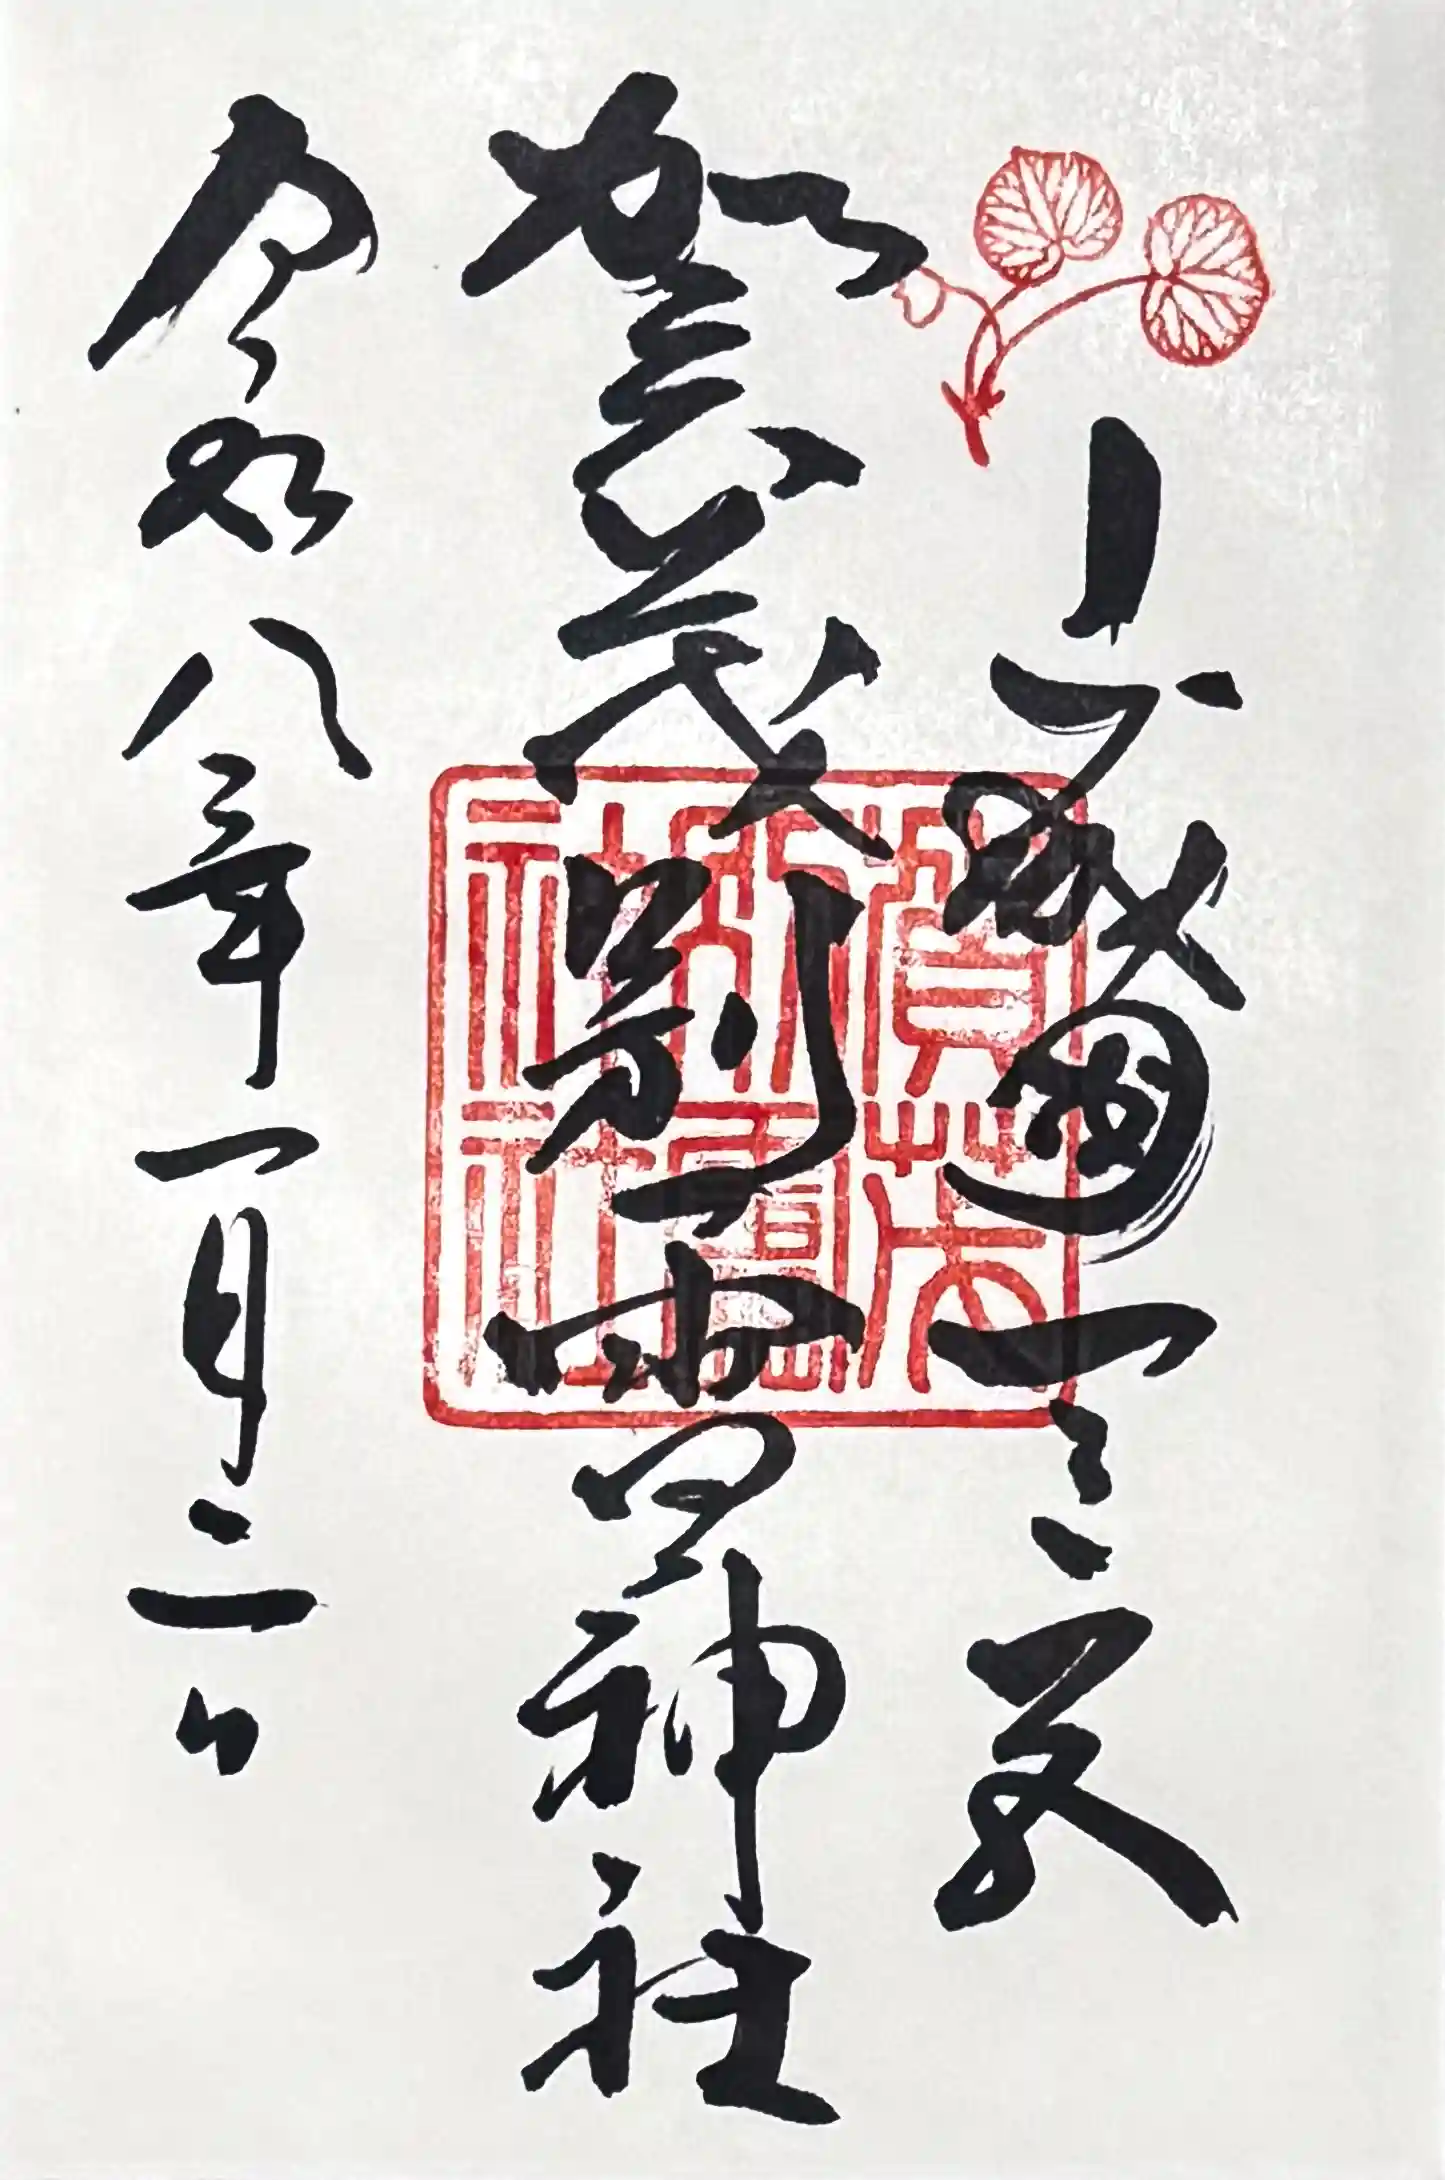 山城國一之宮
賀茂別雷神社
令和八年一月二日
賀茂
別雷
神社